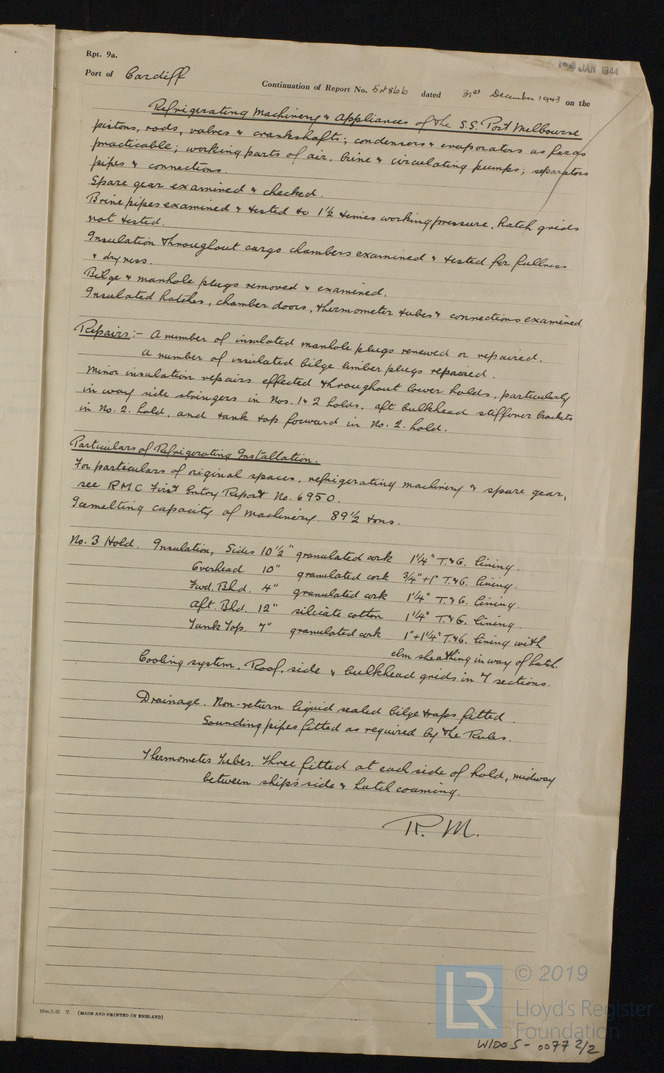 Rpt. 9a.
JAN 1944
Port of Cardiff
Continuation of Report No. dated 31st December 1943 on the
Refrigerating Machinery & Appliances of the S.S. Port Melbourne
pistons, rods, valves & crankshafts; condensers & evaporators as far as
practicable; working parts of air, brine & circulating pumps; separators
pipes & connections.
Spare gear examined & checked.
Brine pipes examined & tested to 1½ times working pressure, hatch grids
not tested.
Insulation throughout cargo chambers examined & tested for fullness
& dryness.
Bilge & manhole plugs removed & examined.
Insulated hatches, chamber doors, thermometer tubes & connections examined
Repairs:- A number of insulated manhole plugs renewed or repaired.
A number of insulated bilge limber plugs repaired.
Minor insulation repairs effected throughout lower holds, particularly
in way side stringers in Nos. 1 & 2 holds, aft bulkhead stiffener brackets
in No. 2. hold, and tank top forward in No. 2. hold.
Particulars of Refrigerating Installation.
For particulars of original spaces, refrigerating machinery & spare gear,
see R.M.C First Entry Report No. 6950.
Icemelting capacity of machinery. 89½ tons.
No. 3 Hold. Insulation, Sides 10½" granulated cork 1¼" T.&G. lining.
Overhead 10" granulated cork ¾"+1" T.&G. lining.
Fwd. Bhd. 4" granulated cork 1¼" T.&G. lining.
Aft. Bhd. 12" silicate cotton 1¼" T.&G. lining.
Tank Top. 7" granulated cork 1"+1¼" T.&G. lining with
elm sheathing in way of hatch.
Cooling system. Roof, side & bulkhead grids in 7 sections.
Drainage. Non-return liquid sealed bilge traps fitted.
Sounding pipes fitted as required by the Rules.
Thermometer Tubes. Three fitted at each side of hold, midway
between ship's side & hatch coaming.
R. M.
(MADE AND PRINTED IN ENGLAND)
LR
© 2019
Lloyd's Register
Foundation
W1005-0077 2/2